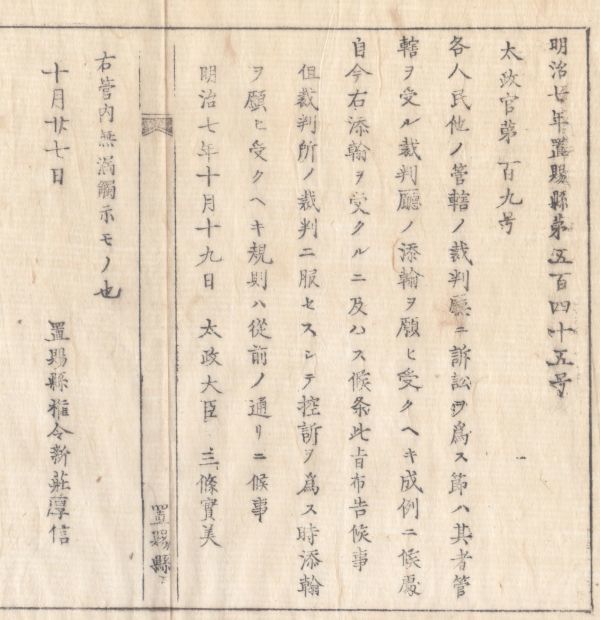 明治七年置賜縣第五百四十五号
太政官第百九号
各人民他ノ管轄ノ裁判廳ニ訴訟ヲ為ス節ハ其者管
轄ヲ受ル裁判廳ノ添翰ヲ願ヒ受クヘキ成例ニ候處
自今右添翰ヲ受クルニ及ハス候条此旨布告候事
但裁判所ノ裁判ニ服セスシテ控訴ヲ為ス時添翰
ヲ願ヒ受クヘキ規則ハ從前ノ通リニ候事
明治七年十月十九日 太政大臣 三條實美
置賜縣
右管内無漏觸示モノ也
十月廿七日 置賜縣権令新莊厚信